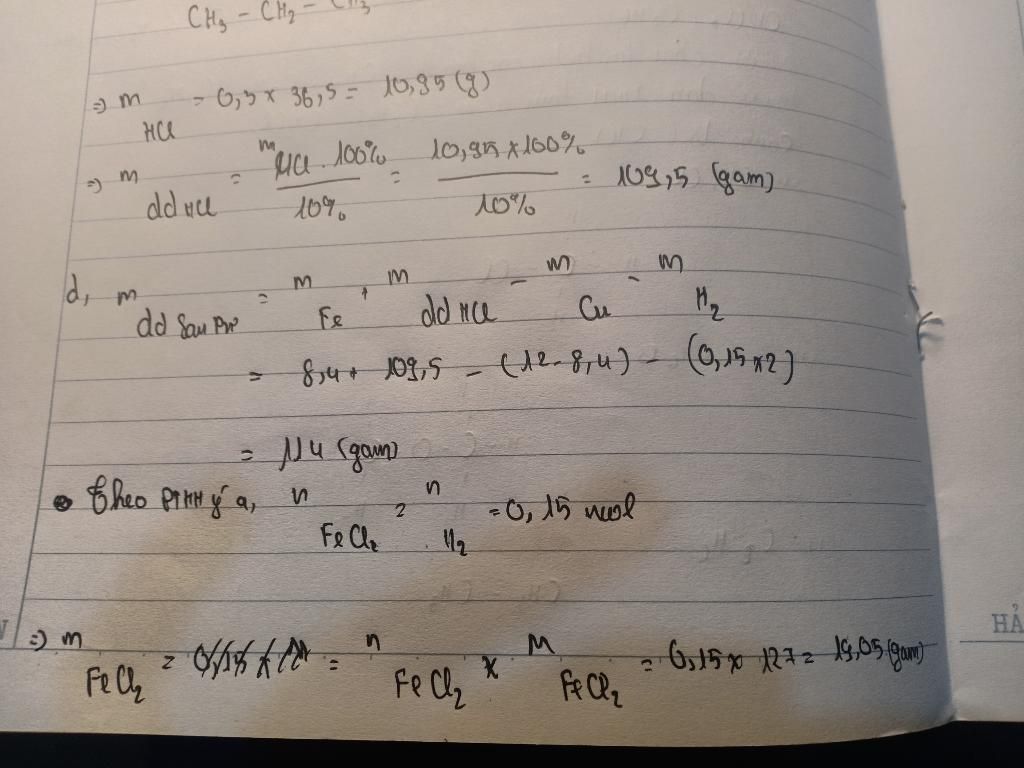 CH₃ - CH₂ - CH₃
=> m HCl = 0,3 x 36,5 = 10,95 (g)
=> m dd HCl = m HCl . 100% / 10% = 10,95 x 100% / 10% = 109,5 (gam)
d, m dd sau pư = m Fe + m dd HCl - m Cu - m H₂
= 8,4 + 109,5 - (12 - 8,4) - (0,15 x 2)
= 114 (gam)
• Theo PTHH ý a, n FeCl₂ = n H₂ = 0,15 mol
=> m FeCl₂ = n FeCl₂ x M FeCl₂ = 0,15 x 127 = 19,05 (gam)
HẢ